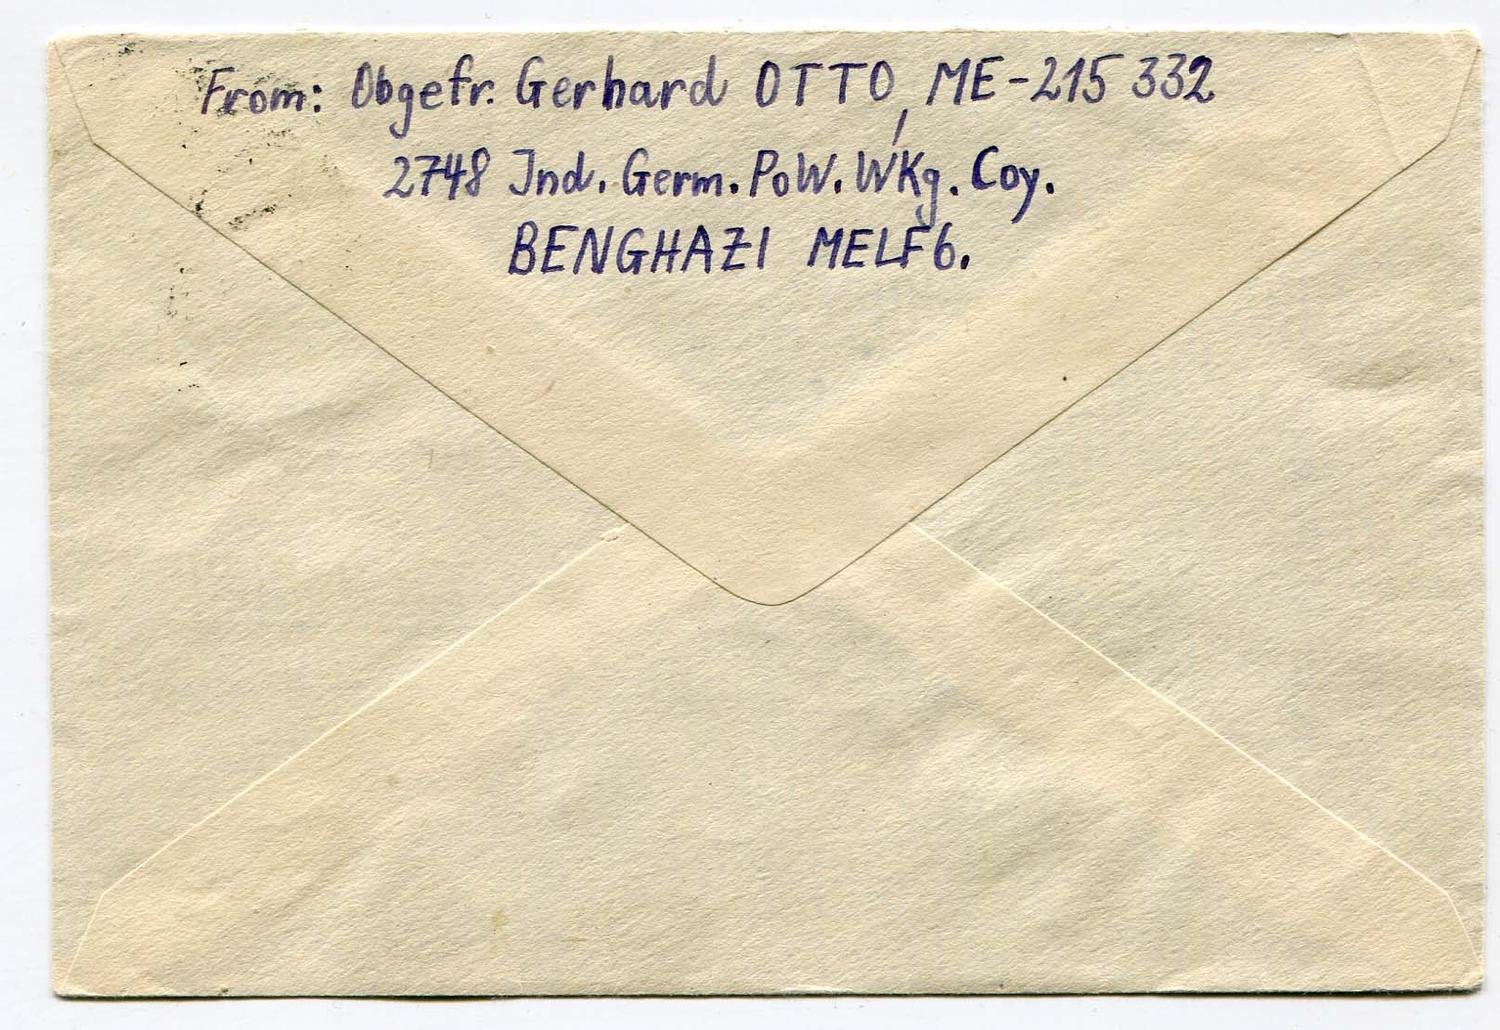 From: Obgefr. Gerhard OTTO, ME-215 332
2748 Ind. Germ. PoW. WKg. Coy.
BENGHAZI MELF 6.